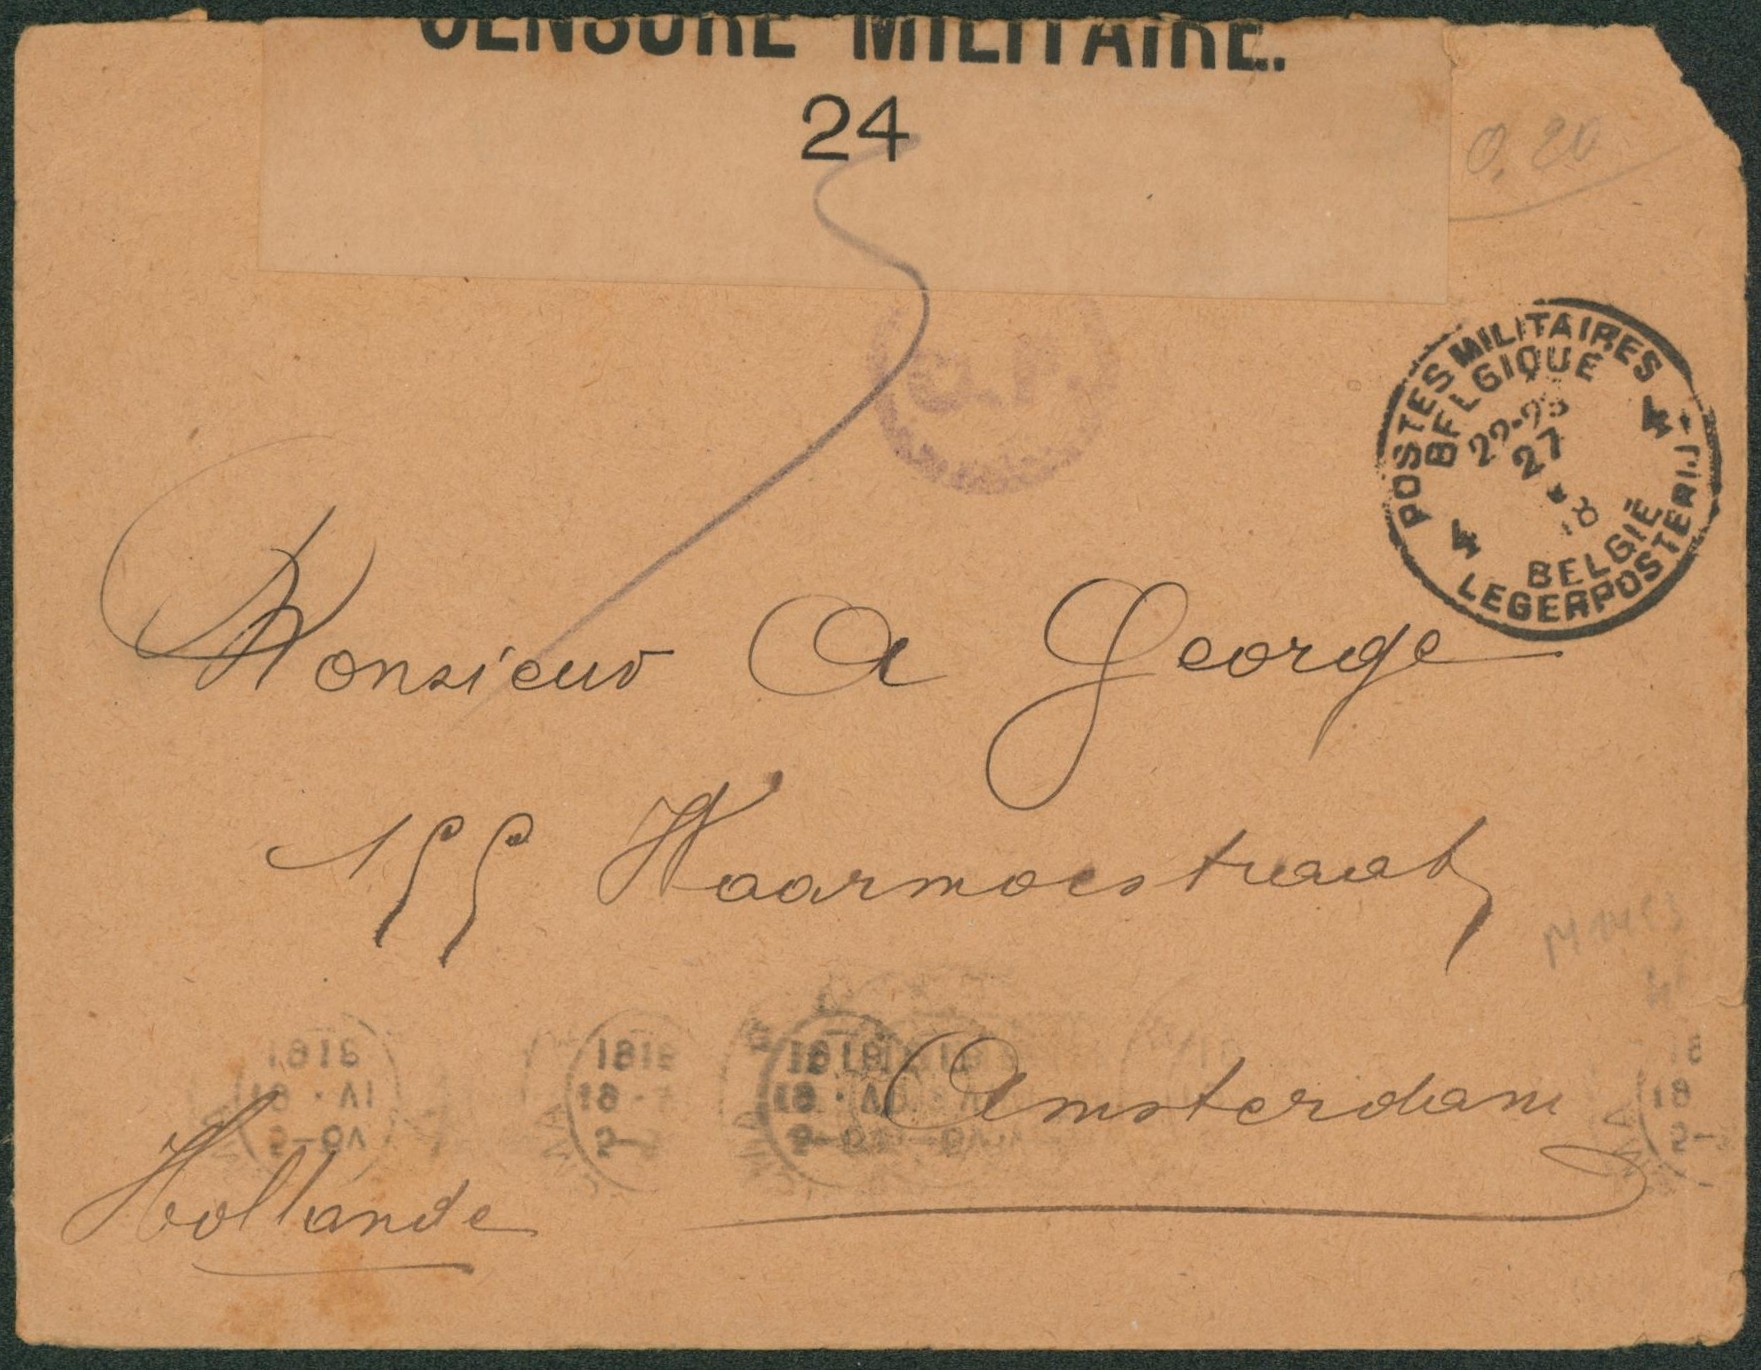 CENSURE MILITAIRE.
24
0,20
POSTES MILITAIRES
BELGIQUE
27
BELGIË
LEGERPOSTERIJ
4
4
Monsieur A George
155 Waarmoestraat
Amsterdam
Hollande